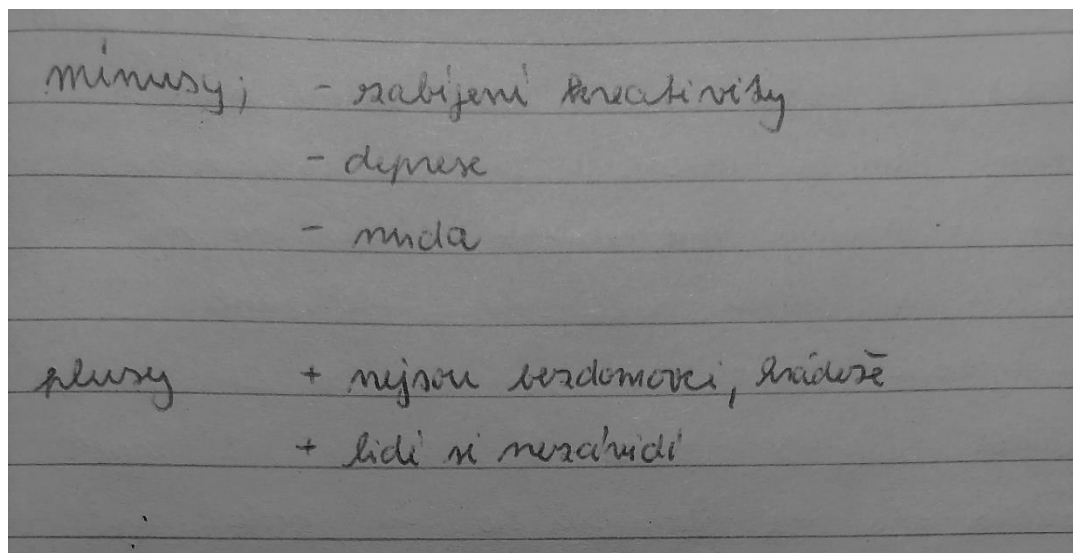 mínusy; - zabíjení kreativity
- deprese
- nuda
plusy + nejsou bezdomovci, krádeže
+ lidi si nezávidí